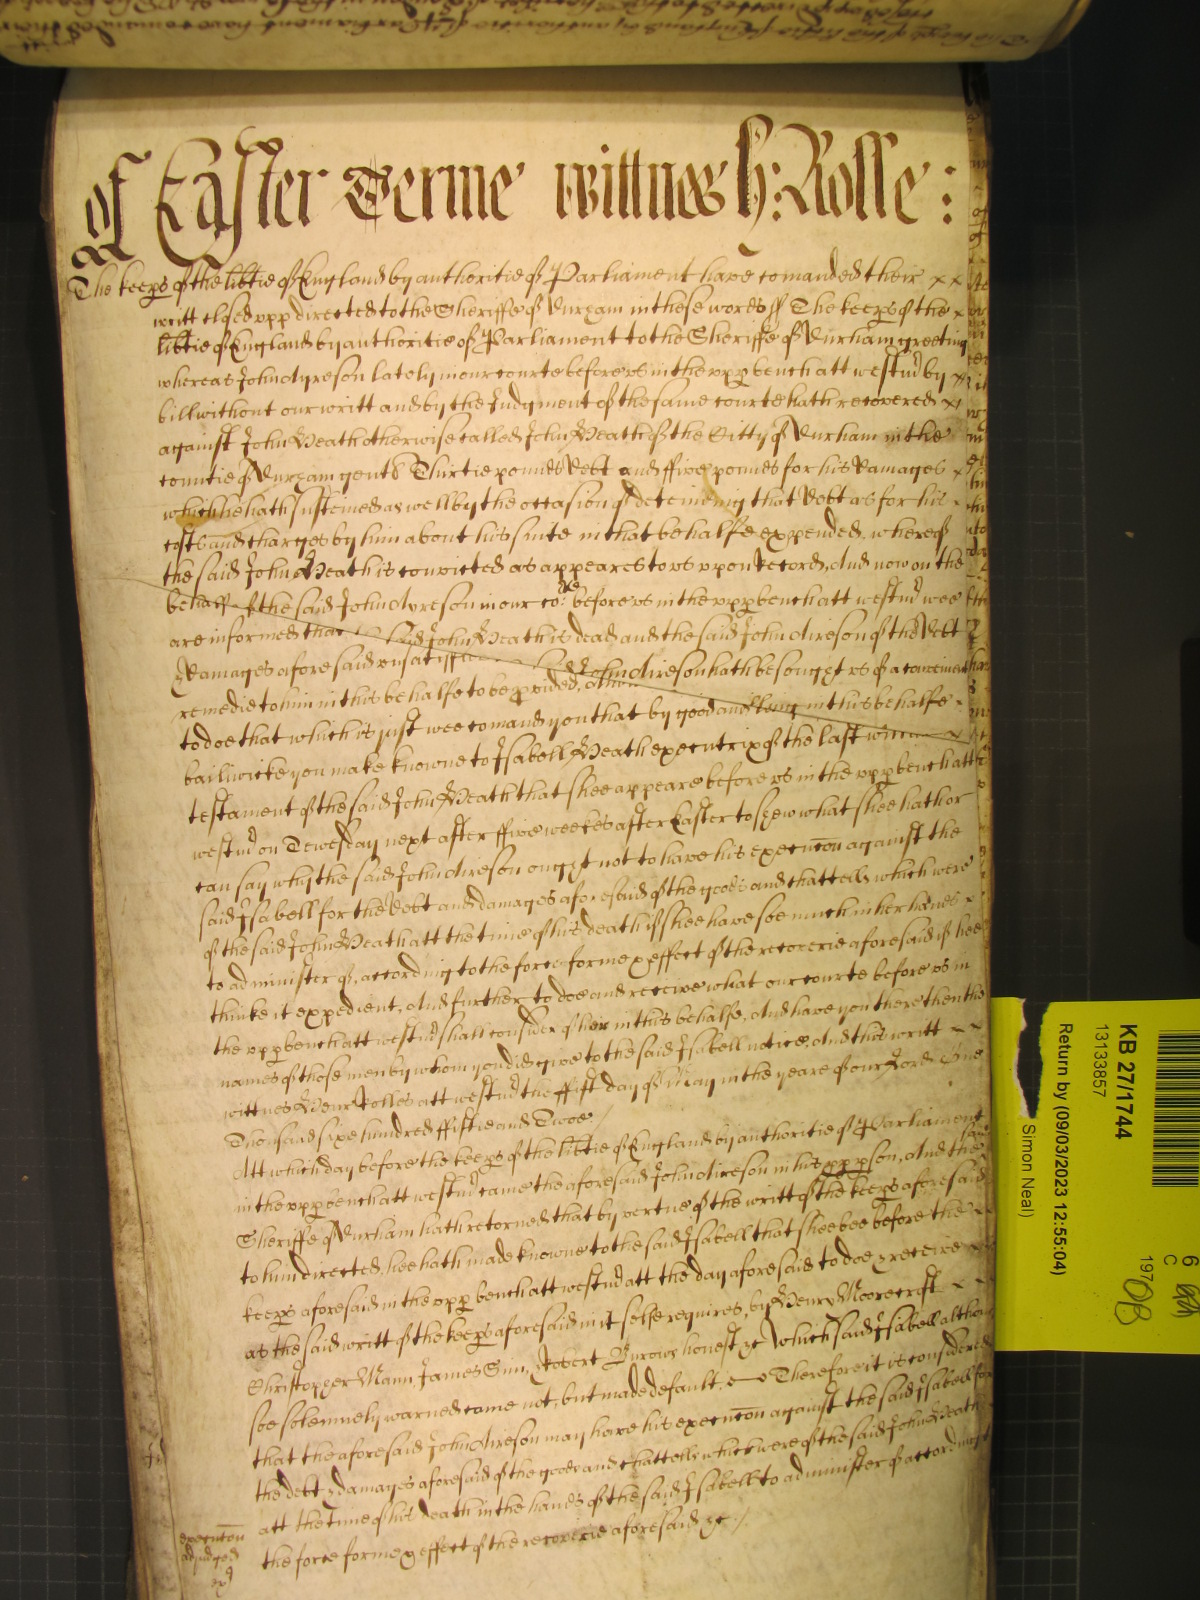 of Easter Terme wittnes H: Rolle:
The keeps of the libtie of England by authoritie of Parliament have comanded their
writt closed vpp directed to the Sheriffe of Durham in these words ss The keeps of the
libtie of England by authoritie of Parliament to the Sheriffe of Durham greeting
whereas John Ayreson lately in our courte before vs in the vpp bench att westm by
bill without our writt and by the Judgment of the same courte hath recovered
against John Heath otherwise called John Heath of the Citty of Durham in the
countie of Durham gent Thirtie pounds debt and ffive pounds for his damages
which he hath susteined as well by the occasion of deteineing that debt as for his
costs and charges by him about his suite in that behalfe expended, whereof
the said John Heath is convicted as appeares to vs vpon Record, And now on the
behalf of the said John Ayreson in our co:te before vs in the vpp bench att westm wee
are informed that said John Heath is dead and the said John Aireson of the debt
& damages aforesaid vnsatisf John Aireson hath besought vs of a convenient
remedie to him in this behalfe to be provided, And
to doe that which is just wee comand you that by good and in this behalfe
bailiwicke you make knowne to Isabell Heath executrix of the last
testament of the said John Heath that shee appeare before vs in the vpp bench att
westm on Tewesday next after ffive weekes after Easter to shew what shee hath or
can say why the said John Aireson ought not to have his execucon against the
said Isabell for the debt and damages aforesaid of the goods and chattells which were
of the said John Heath att the time of his death if shee have soe much in her hands
to administer of, according to the force forme & effect of the recoverie aforesaid if hee
thinke it expedient, And further to doe and receive what our courte before vs in
the vpp bench att westm shall consider of her in this behalfe, And have you there then the
names of those men by whom you did give to the said Isabell notice, And this writt
wittnes Henr Rolles att westm the ffift day of May in the yeare of our Lord One
Thousand sixe hundred ffiftie and Twoe /
Att which day before the keeps of the libtie of England by authoritie of Parliament
in the vpp bench att westm came the aforesaid John Aireson in his pp pson, And the said
Sheriffe of Durham hath retorned that by vertue of the writt of the keeps aforesaid
to him directed, hee hath made knowne to the said Isabell that shee bee before the
keeps aforesaid in the vpp bench att westm att the day aforesaid to doe & receive
as the said writt of the keeps aforesaid in it selfe requires, by Henry Moorecroft
Christopher Mann, James Sim, Robert honest &c Which said Isabell
soe solemnely warned came not, but made default, Therefore it is considered
that the aforesaid John Aireson may have his execucon against the said Isabell for
the debt & damages aforesaid of the goods and chattells which were of the said John Heath
att the time of his death in the hands of the said Isabell to administer of according to
the force forme & effect of the recoverie aforesaid &c /
execucon
adjudged
KB 27/1744
13133857
Return by (09/03/2023 12:55:04)
Simon Neal)
6
C
197